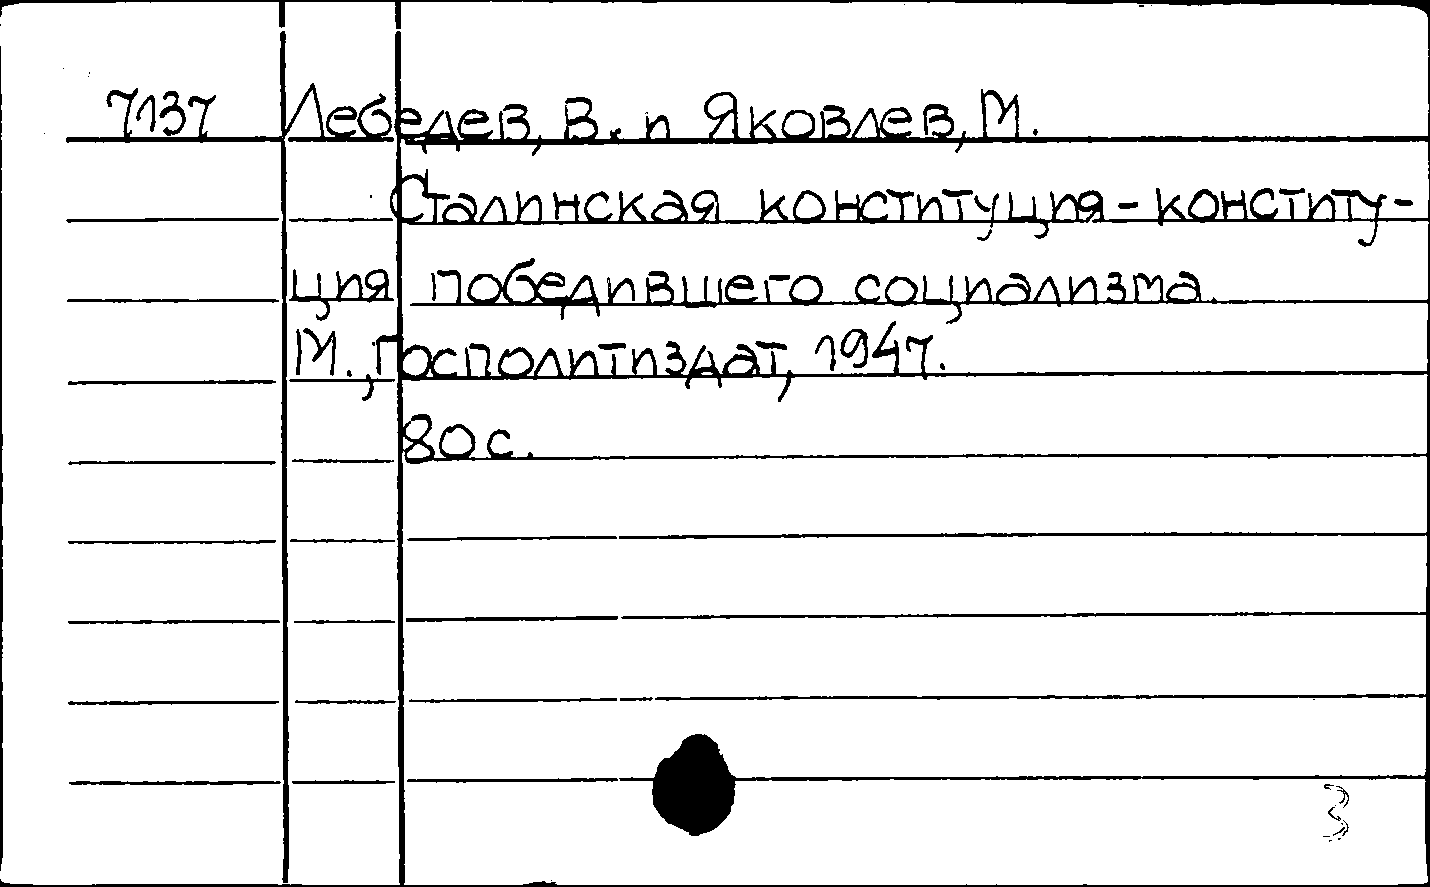 7137 Лебедев, В. и Яковлев, М.
Сталинская конституция - конститу-
ция победившего социализма.
М., Госполитиздат, 1947.
80 с.
3